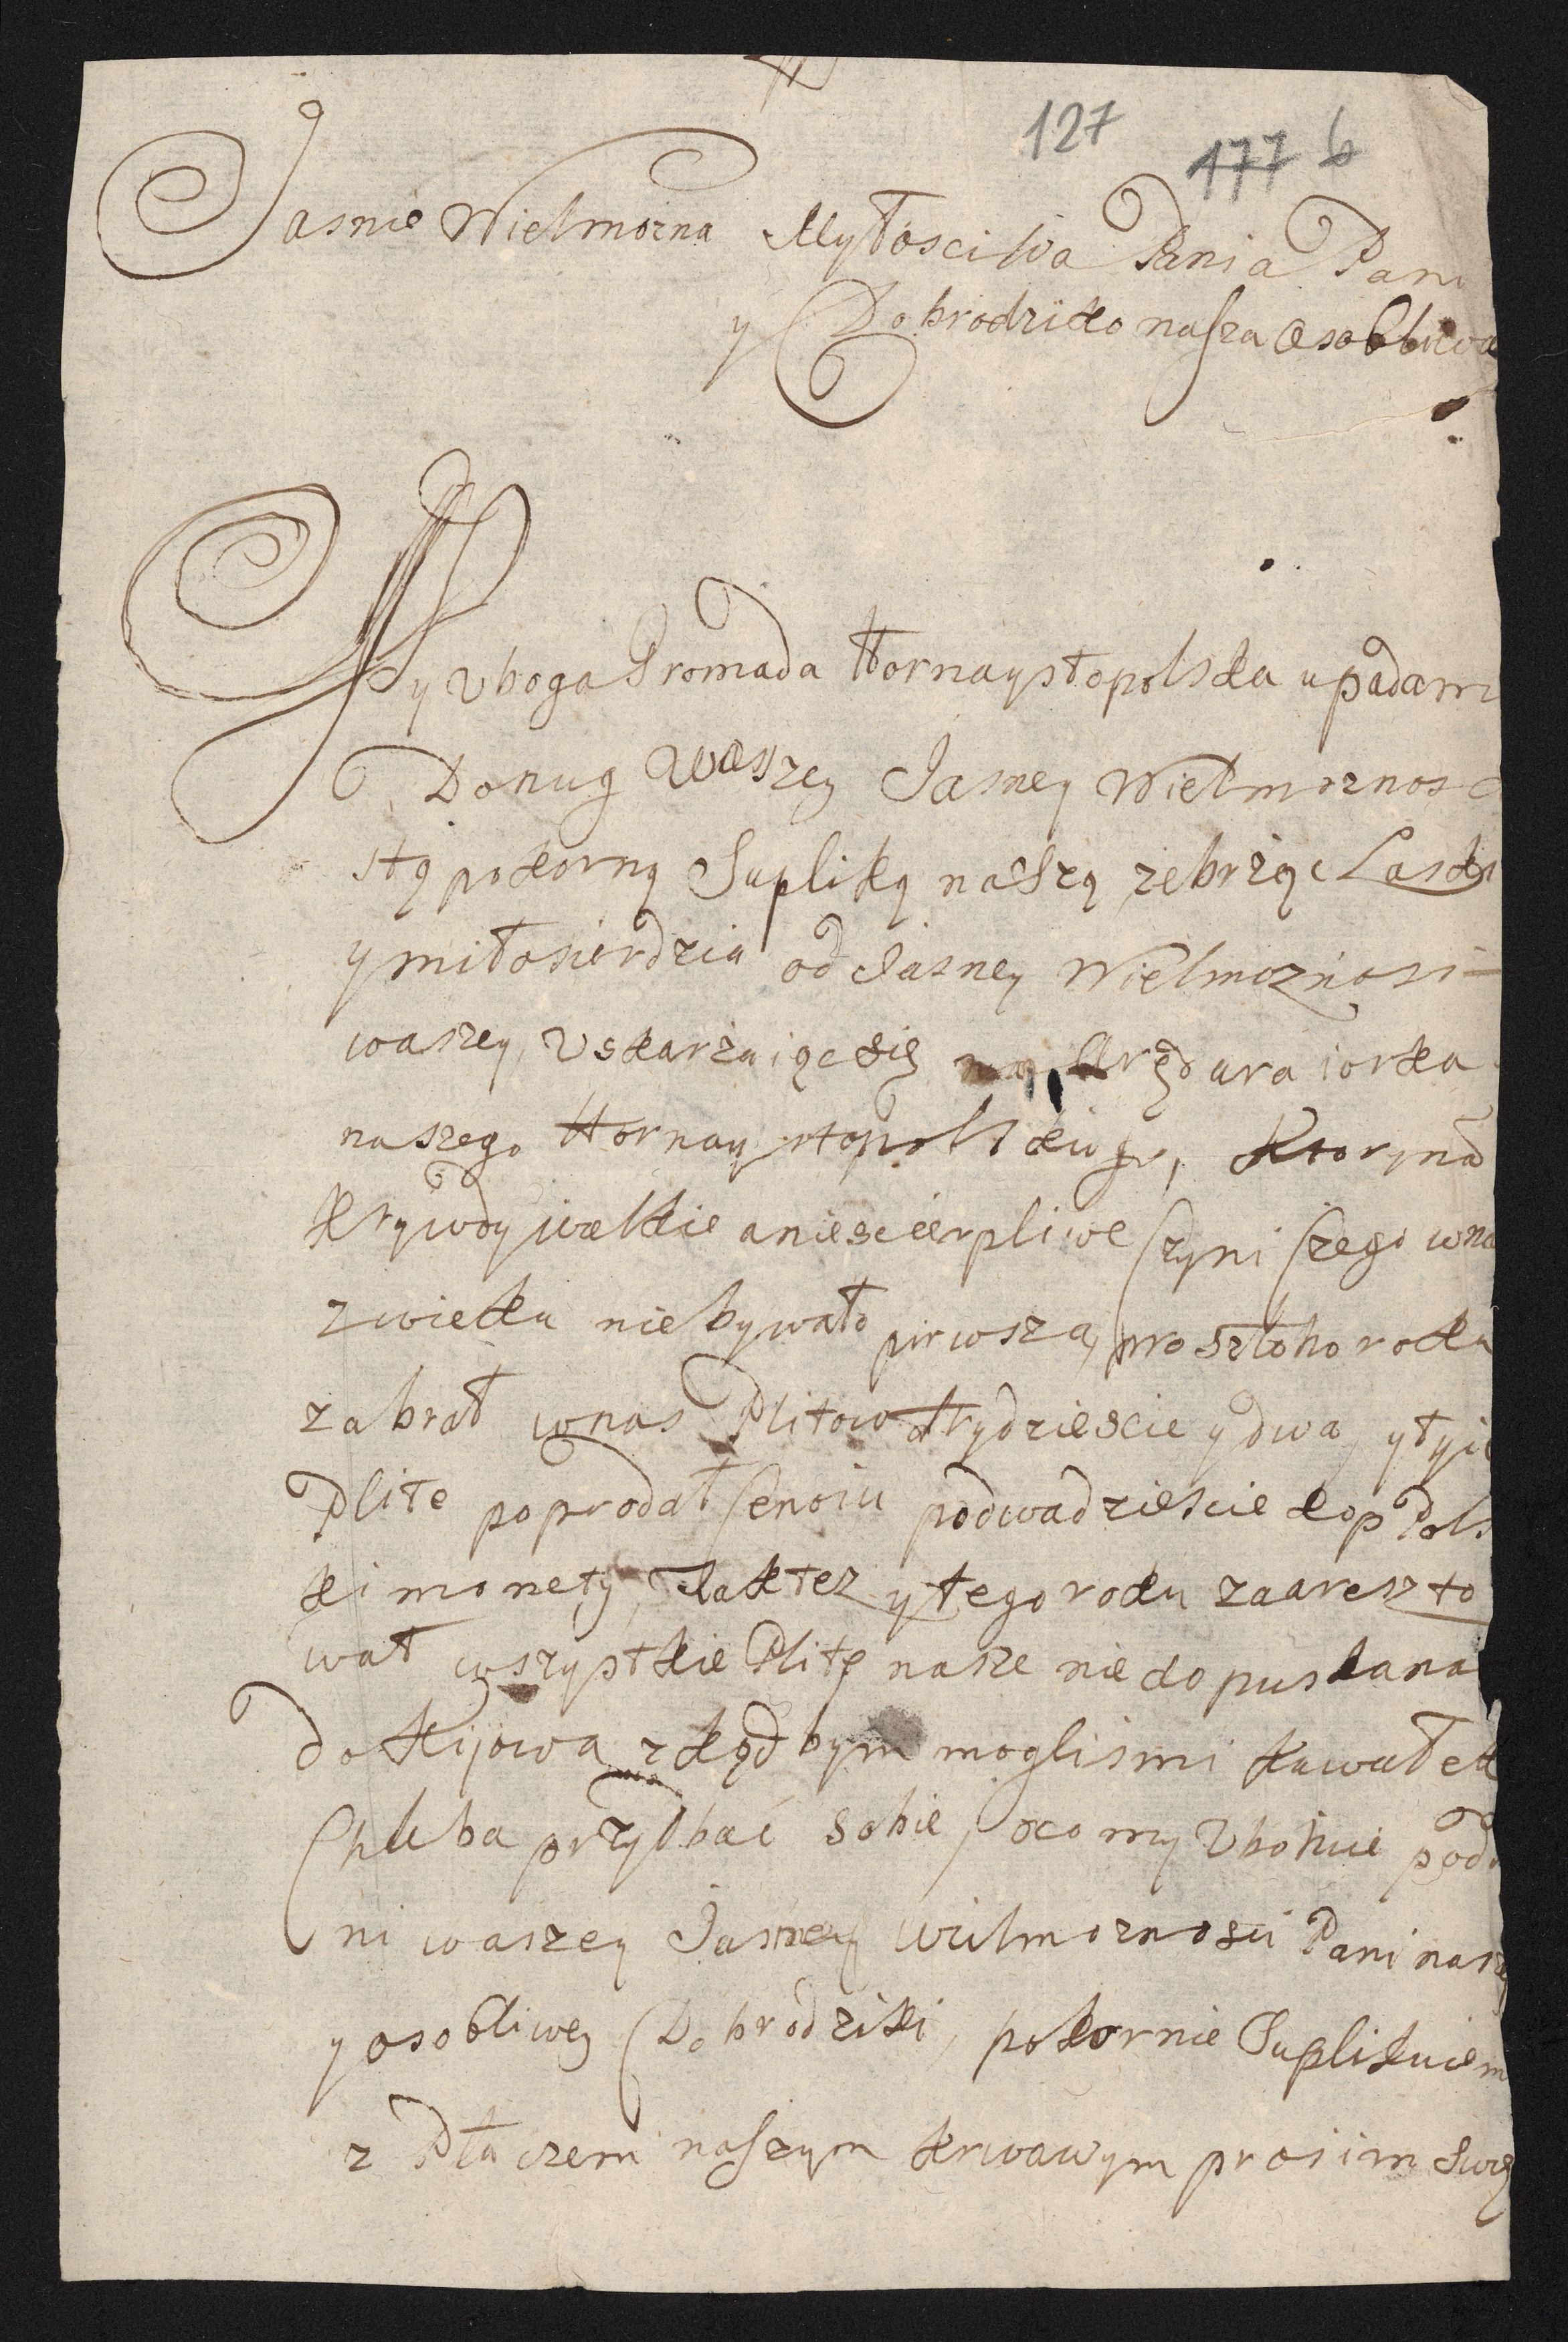 127
177 6
Jasnie Wielmozna Myłosciwa Pania Pani
y Dobrodziko nasza Osobliwa
My Vboga Gromada Hornaystopolska upadami
Donug Waszey Jasney Wielmoznosc
stą pokorną Supliką naszą żebrząc Laski
y miłosierdzia od Jasney Wielmoznosi
waszey, Vskarzaiąc się na Arędara iorka
naszego Hornaystopolskiego, Ktory nã
krywdy wielkie a niescierpliwe czyni czego w na
zwieku niebywało pirwsza, proszłoho roku
zabrał wnas Plitow trydziescie y dwa, y tyie
Plite poprodał cenoiu podwadziescie kop Pols
ki monety, Taktez y tego roku zaareszto
wał wszystkie Plitę nasze niedopuskana
do Kijowa zkądbym moglismi kawałek
Chleba przydbać sobie, oco my Vbohie podd
ni waszey Jasney wielmoznosci Pani nasze
y osobliwey Dobrodziki, pokornie Suplikuiem
z Płaczem naszym krwawym prosim swię